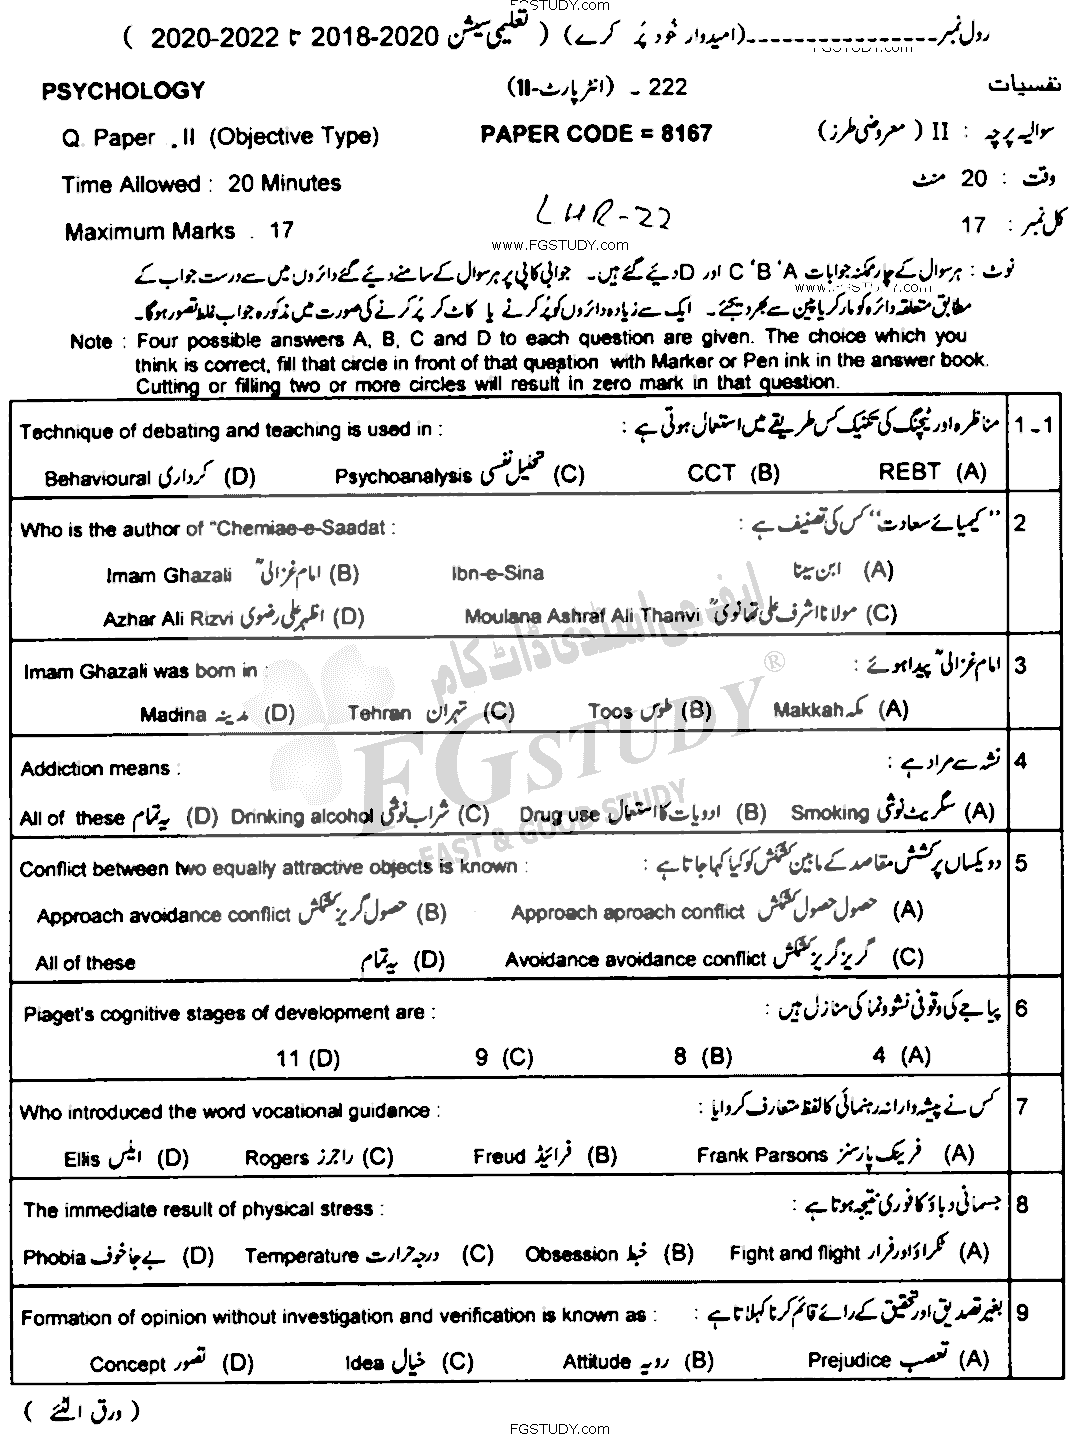 FGSTUDY.com
رول نمبر ----------------(امیدوار خود پُر کرے) ( تعلیمی سیشن 2018-2020 تا 2020-2022 )
FGSTUDY.com
PSYCHOLOGY 222 ۔ (انٹر پارٹ-II) نفسیات
Q. Paper . II (Objective Type) PAPER CODE = 8167 سوالیہ پرچہ : II ( معروضی طرز)
Time Allowed : 20 Minutes وقت : 20 منٹ
Maximum Marks . 17 LHR-22 کل نمبر : 17
www.FGSTUDY.com
نوٹ : ہر سوال کے چار ممکنہ جوابات A ' B ' C اور D دیئے گئے ہیں۔ جوابی کاپی پر ہر سوال کے سامنے دیئے گئے دائروں میں سے درست جواب کے
www.FGSTUDY.com
مطابق متعلقہ دائرہ کو مارکر یا پین سے بھر دیجئے۔ ایک سے زیادہ دائروں کو پُر کرنے یا کاٹ کر پُر کرنے کی صورت میں مذکورہ جواب غلط تصور ہوگا۔
Note : Four possible answers A, B, C and D to each question are given. The choice which you
think is correct, fill that circle in front of that question with Marker or Pen ink in the answer book.
Cutting or filling two or more circles will result in zero mark in that question.
Technique of debating and teaching is used in : مناظرہ اور ٹیچنگ کی تکنیک کس طریقے میں استعمال ہوتی ہے : 1۔1
Behavioural کرداری (D) Psychoanalysis تحلیل نفسی (C) CCT (B) REBT (A)
Who is the author of "Chemiae-e-Saadat : ’’کیمیائے سعادت‘‘ کس کی تصنیف ہے : 2
Imam Ghazali امام غزالیؒ (B) Ibn-e-Sina ابن سینا (A)
Azhar Ali Rizvi اظہر علی رضوی (D) Moulana Ashraf Ali Thanvi مولانا اشرف علی تھانویؒ (C)
ایف جی اسٹڈی ڈاٹ کام
Imam Ghazali was born in : امام غزالیؒ پیدا ہوئے : 3
Madina مدینہ (D) Tehran تہران (C) Toos طوس (B) Makkah مکہ (A)
FGSTUDY ®
Addiction means : نشہ سے مراد ہے : 4
All of these یہ تمام (D) Drinking alcohol شراب نوشی (C) Drug use ادویات کا استعمال (B) Smoking سگریٹ نوشی (A)
FAST & GOOD STUDY
Conflict between two equally attractive objects is known : دو یکساں پر کشش مقاصد کے مابین کشمکش کو کیا کہا جاتا ہے : 5
Approach avoidance conflict حصول گریز کشمکش (B) Approach aproach conflict حصول حصول کشمکش (A)
All of these یہ تمام (D) Avoidance avoidance conflict گریز گریز کشمکش (C)
Piaget's cognitive stages of development are : پیاجے کی وقوفی نشوونما کی منازل ہیں : 6
11 (D) 9 (C) 8 (B) 4 (A)
Who introduced the word vocational guidance : کس نے پیشہ دارانہ رہنمائی کا لفظ متعارف کروایا : 7
Ellis ایلس (D) Rogers راجرز (C) Freud فرائیڈ (B) Frank Parsons فرینک پارسنز (A)
The immediate result of physical stress : جسمانی دباؤ کا فوری نتیجہ ہوتا ہے : 8
Phobia بے جا خوف (D) Temperature درجہ حرارت (C) Obsession خبط (B) Fight and flight ٹکراؤ اور فرار (A)
Formation of opinion without investigation and verification is known as : بغیر تصدیق اور تحقیق کے رائے قائم کرنا کہلاتا ہے : 9
Concept تصور (D) Idea خیال (C) Attitude رویہ (B) Prejudice تعصب (A)
( ورق الٹئے )
FGSTUDY.com